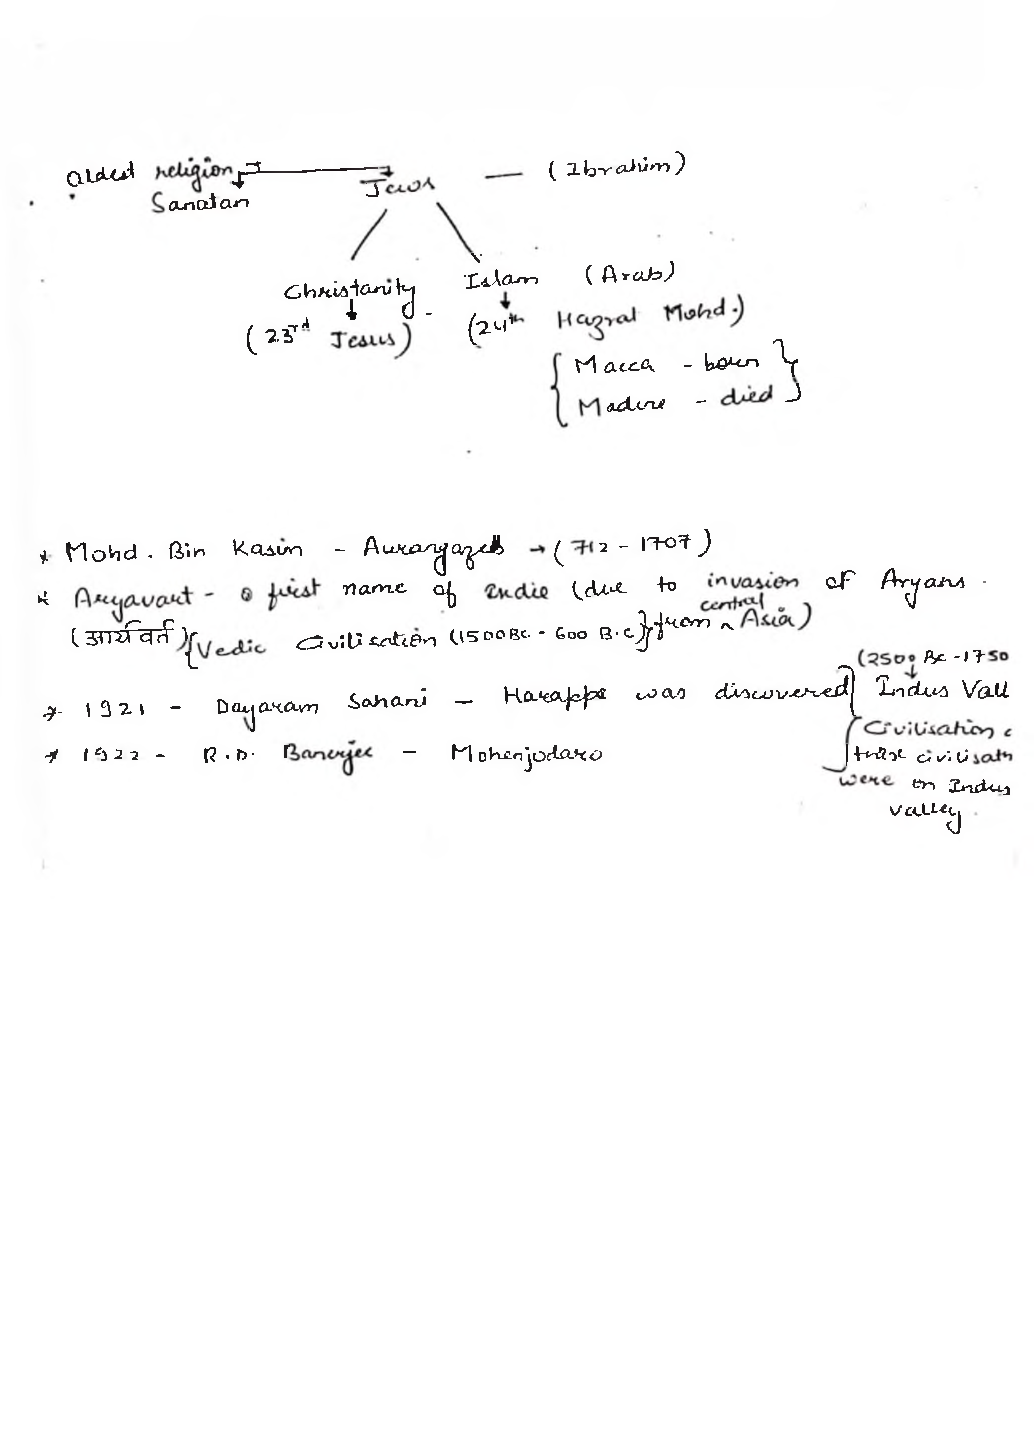 Oldest religion → Jews — (Ibrahim)
Sanatan
Christanity Islam (Arab)
(23rd Jesus) (24th Hazrat Mohd.)
{ Macca - born }
{ Madine - died }
* Mohd. Bin Kasim - Aurangazeb → (712 - 1707)
* Aryavart - first name of India (due to invasion of Aryans.
(आर्यवर्त) {Vedic Civilisation (1500 BC. - 600 B.C)} from central Asia)
(2500 BC - 1750
* 1921 - Dayaram Sahani - Harappa was discovered Indus Vall
Civilisation
* 1922 - R.D. Banerjee - Mohenjodaro
these civilisatn
were on Indus
valley.